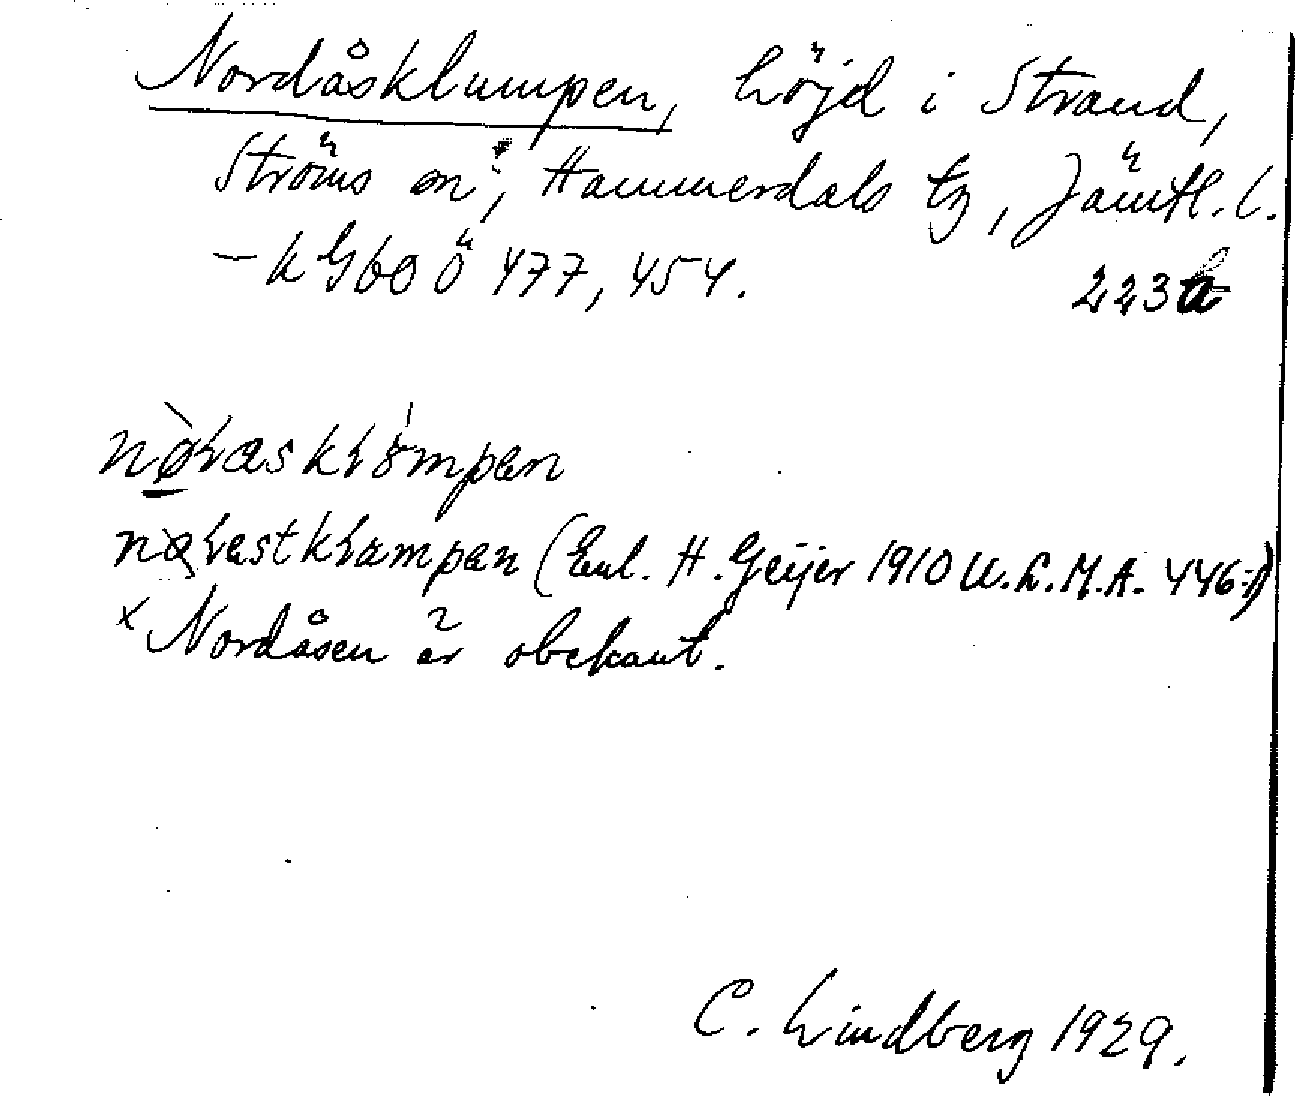 Nordåsklumpen, höjd i Strand,
Ströms sn, Hammerdals tg, Jämtl. l.
– k G60 ö 477, 454. 223
(Enl. H. Geijer 1910 U.L.M.A. 446:1)
x Nordåsen är obekant.
C. Lindberg 1929.